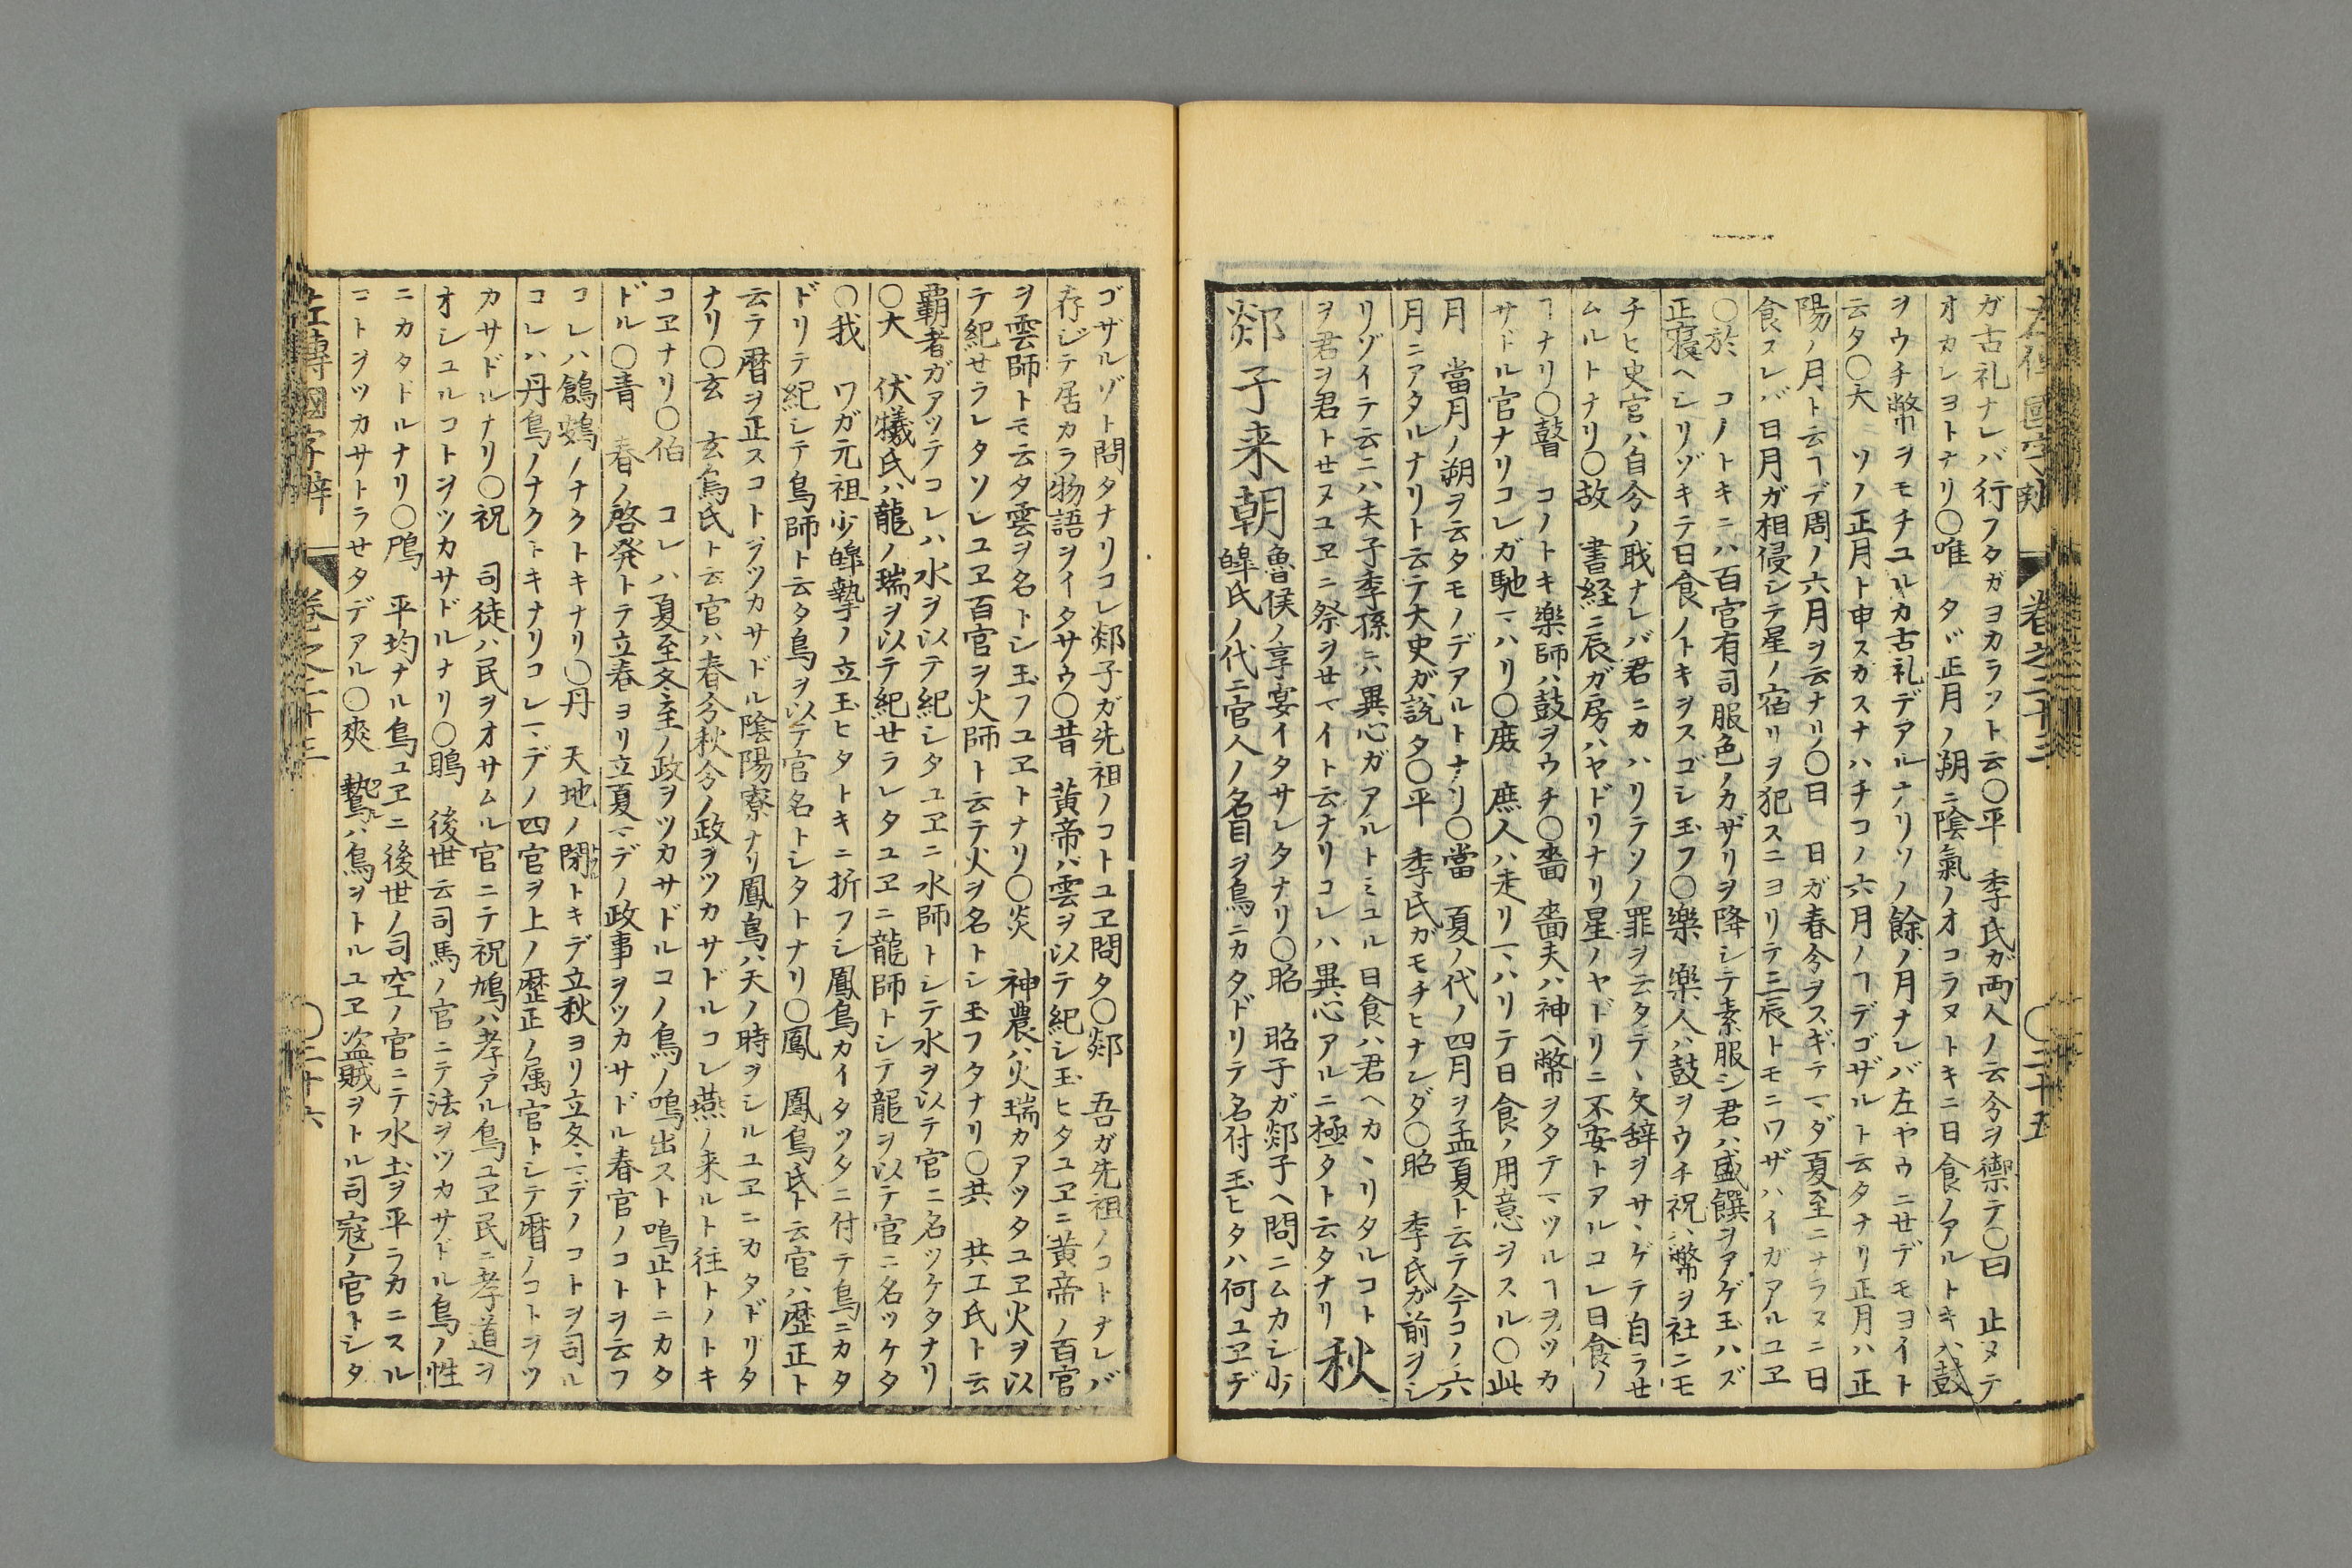 左傳國字辨 卷之二十三 ○二十五
ガ古礼ナレバ行フタガヨカラント云○平 季氏ガ両人ノ云分ヲ禦テ○曰 止ヌテ
オカレヨトナリ○唯 タヾ正月ノ朔ニ陰氣ノオコラヌトキニ日食ノアルトキハ鼓
ヲウチ幣ヲモチユルカ古礼デアルナリソノ餘ノ月ナレバ左ヤウニせデモヨイト
云タ○大 ソノ正月ト申スガスナハチコノ六月ノヿデゴザルト云タナリ正月ハ正
陽ノ月ト云ヿデ周ノ六月ヲ云ナリ○日 日ガ春分ヲスギテマダ夏至ニナラヌニ日
食スレバ日月ガ相侵シテ星ノ宿リヲ犯スニヨリテ三辰トモニワザハイガアルユヱ
○於 コノトキニハ百官有司服色ノカザリヲ降シテ素服シ君ハ盛饌ヲアゲ玉ハズ
正寝ヘシリゾキテ日食ノトキヲスゴシ玉フ○樂 樂人ハ鼓ヲウチ祝ハ幣ヲ社ニモ
チヒ史官ハ自分ノ職ナレバ君ニカハリテソノ罪ヲ云タテヽ文辞ヲサヽゲテ自ラせ
ムルトナリ○故 書経ニ辰ガ房ハヤドリナリ星ノヤドリニ不安トアルコレ日食ノ
ヿナリ○瞽 コノトキ樂師ハ鼓ヲウチ○嗇 嗇夫ハ神ヘ幣ヲタテマツルヿヲツカ
サドル官ナリコレガ馳マハリ○庶 庶人ハ走リマハリテ日食ノ用意ヲスル○此
月 當月ノ朔ヲ云タモノデアルトナリ○當 夏ノ代ノ四月ヲ孟夏ト云テ今コノ六
月ニアタルナリト云テ大史ガ説タ○平 季氏ガモチヒナンダ○昭 季氏ガ前ヲシ
リゾイテ云ニハ夫子季孫ニハ異心ガアルトミユル日食ハ君ヘカヽリタルコト
ヲ君ヲ君トせヌユヱニ祭ヲせマイト云ナリコレハ異心アルニ極タト云タナリ 秋
郯子来朝 魯侯ノ享宴イタサレタナリ○昭 昭子ガ郯子ヘ問ニムカシ少
皥氏ノ代ニ官人ノ名目ヲ鳥ニカタドリテ名付玉ヒタハ何ユヱデ
ゴザルゾト問タナリコレ郯子ガ先祖ノコトユヱ問タ○郯 吾ガ先祖ノコトナレバ
存ジテ居カラ物語ヲイタサウ○昔 黄帝ハ雲ヲ以テ紀シ玉ヒタユヱニ黄帝ノ百官
ヲ雲師トモ云タ雲ヲ名トシ玉フユヱトナリ○炎 神農ハ火瑞カアツタユヱ火ヲ以
テ紀せラレタソレユヱ百官ヲ火師ト云テ火ヲ名トシ玉フタナリ○共 共工氏ト云
覇者ガアツテコレハ水ヲ以テ紀シタユヱニ水師トシテ水ヲ以テ官ニ名ツケタナリ
○大 伏犠氏ハ龍ノ瑞ヲ以テ紀せラレタユヱニ龍師トシテ龍ヲ以テ官ニ名ツケタ
○我 ワガ元祖少皥摯ノ立玉ヒタトキニ折フシ鳳鳥カイタツタニ付テ鳥ニカタ
ドリテ紀シテ鳥師ト云タ鳥ヲ以テ官名トシタトナリ○鳳 鳳鳥氏ト云官ハ歴正ト
云テ暦ヲ正スコトヲツカサドル陰陽寮ナリ鳳鳥ハ天ノ時ヲシルユヱニカタドリタ
ナリ○玄 玄鳥氏ト云官ハ春分秋分ノ政ヲツカサドルコレ燕ノ来ルト往トノトキ
コヱナリ○伯 コレハ夏至冬至ノ政ヲツカサドルコノ鳥ノ鳴出スト鳴止トニカタ
ドル○青 春ノ啓発トテ立春ヨリ立夏マデノ政事ヲツカサドル春官ノコトヲ云フ
コレハ鶬鴳ノナクトキナリ○丹 天地ノ閉トキデ立秋ヨリ立冬マデノコトヲ司ル
コレハ丹鳥ノナクトキナリコレマデノ四官ヲ上ノ歴正ノ属官トシテ暦ノコトヲツ
カサドルナリ○祝 司徒ハ民ヲオサムル官ニテ祝鳩ハ孝アル鳥ユヱ民ニ孝道ヲ
オシユルコトヲツカサドルナリ○鴡 後世云司馬ノ官ニテ法ヲツカサドル鳥ノ性
ニカタドルナリ○鳲 平均ナル鳥ユヱニ後世ノ司空ノ官ニテ水土ヲ平ラカニスル
コトヲツカサトラせタデアル○爽 鷙ハ鳥ヲトルユヱ盗賊ヲトル司寇ノ官トシタ
左傳國字辨 卷之二十三 ○二十六